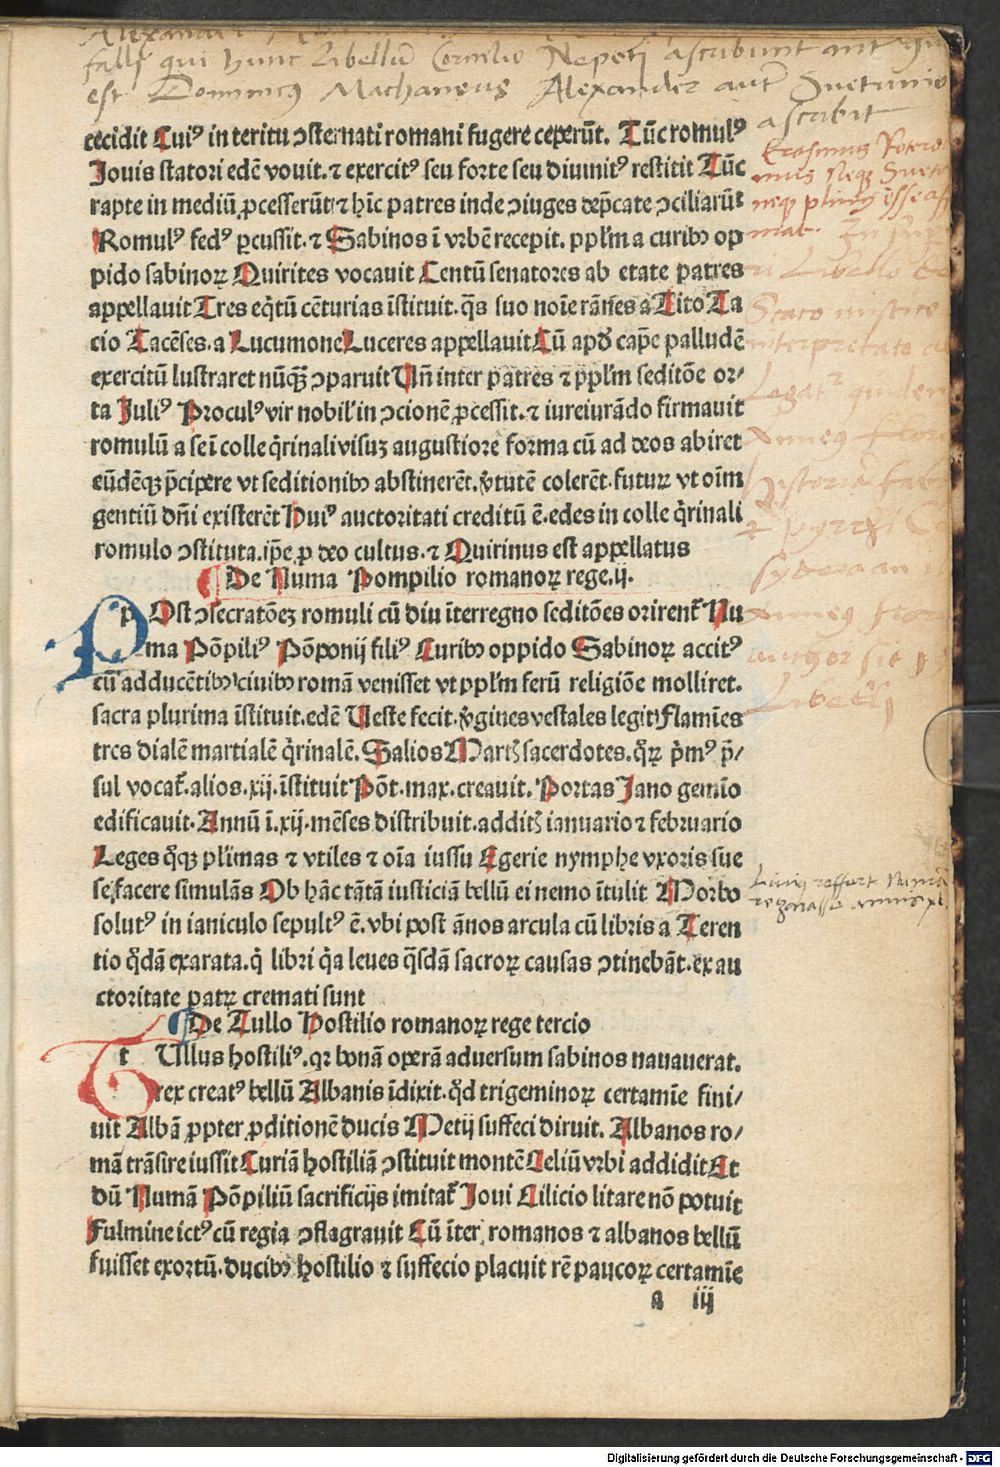 falsi qui hunc Libellū Cornelio Nepoti ascribunt
est Dominicꝰ Machaneus Alexander aut Suetunio
ascribit
cecidit Cuiꝰ in teritu ↄsternati romani fugere ceperūt. Tūc romulꝰ
Jouis statori edē vovit. ⁊ exercitꝰ seu forte seu diuinitꝰ restitit Tūc
rapte in mediū ꝓcesserūt ⁊ hīc patres inde ↄiuges dep̄cate ↄciliarūt
Romulꝰ fedꝰ ꝑcussit. ⁊ Sabinos ī vrbē recepit. ppl̄m a curibꝫ op
pido sabinoꝝ Quirites vocauit Centū senatores ab etate patres
appellauit Tres eq̄tū cēturias īstituit. q̄s suo noīe rāñes a Tito Ta
cio Tacēses. a Lucumone Luceres appellauit Cū apd̄ cap̄e palludē
exercitū lustraret nūq̄ꝫ ↄparuit Vn̄ inter patres ⁊ ppl̄m seditōe or/
ta Juliꝰ Proculꝰ vir nobil' in ↄcionē ꝓcessit. ⁊ iureiurādo firmauit
romulū a se ī colle q̇rinali visuꝫ augustiore forma cū ad deos abiret
eūdēqꝫ p̄cipere vt seditionibꝫ abstinerēt. v̓tutē colerēt. futuꝝ vt oīm
gentiū dn̄i existerēt Huiꝰ auctoritati creditū ē. edes in colle q̇rinali
romulo ↄstituta. ip̄e ꝓ deo cultus. ⁊ Quirinus est appellatus
¶ De Numa Pompilio romanoꝝ rege. ij.
p Ost ↄsecratōeꝫ romuli cū diu īterregno seditōes orirent᷑ Nu
ma Pōpiliꝰ Pōponij filiꝰ Curibꝫ oppido Sabinoꝝ accitꝰ
cū adducētibꝫ ciuibꝫ romā venisset vt ppl̄m ferū religiōe molliret.
sacra plurima īstituit. edē Ueste fecit. v̓gines vestales legit. flamīes
tres dialē martialē q̇rinalē. Salios Martꝭ sacerdotes. q̊ꝝ p̄mꝰ p̄/
sul vocat᷑. alios. xij. īstituit Pōt. max. creauit. Portas Jano gemīo
edificauit. Annū ī. xij. mēses distribuit. additꝭ ianuario ⁊ februario
Leges q̊qꝫ pl̓imas ⁊ vtiles ⁊ oīa iussu Egerie nymphe vxoris sue
se facere simulās Ob hāc tātā iusticiā bellū ei nemo ītulit Morbo
solutꝰ in ianiculo sepultꝰ ē. vbi post ānos arcula cū libris a Teren
tio q̊dā exarata. q̇ libri q̇a leues q̄sdā sacroꝝ causas ↄtinebāt. ex au
ctoritate patꝝ cremati sunt
¶ De Tullo Hostilio romanoꝝ rege tercio
t Ullus hostiliꝰ. qꝛ bonā operā aduersum sabinos nauauerat.
rex creatꝰ bellū Albanis īdixit. q̊d trigeminoꝝ certamīe fini/
uit Albā ꝓpter ꝓditionē ducis Metij suffeci diruit. Albanos ro/
mā trāsire iussit Curiā hostiliā ↄstituit montē Celiū vrbi addidit Et
dū Numā Pōpiliū sacrificijs imitat᷑ Joui Cilicio litare nō potuit
Fulmine ictꝰ cū regia ↄflagrauit Cū īter romanos ⁊ albanos bellū
fuisset exortū. ducibꝫ hostilio ⁊ suffecio placuit rē paucoꝝ certamīe
a iij
Erasmus Rotero
Historiā
Anneus
Libelli
Liuius reffert Numā
regnasse annis xl.
Digitalisierung gefördert durch die Deutsche Forschungsgemeinschaft - DFG